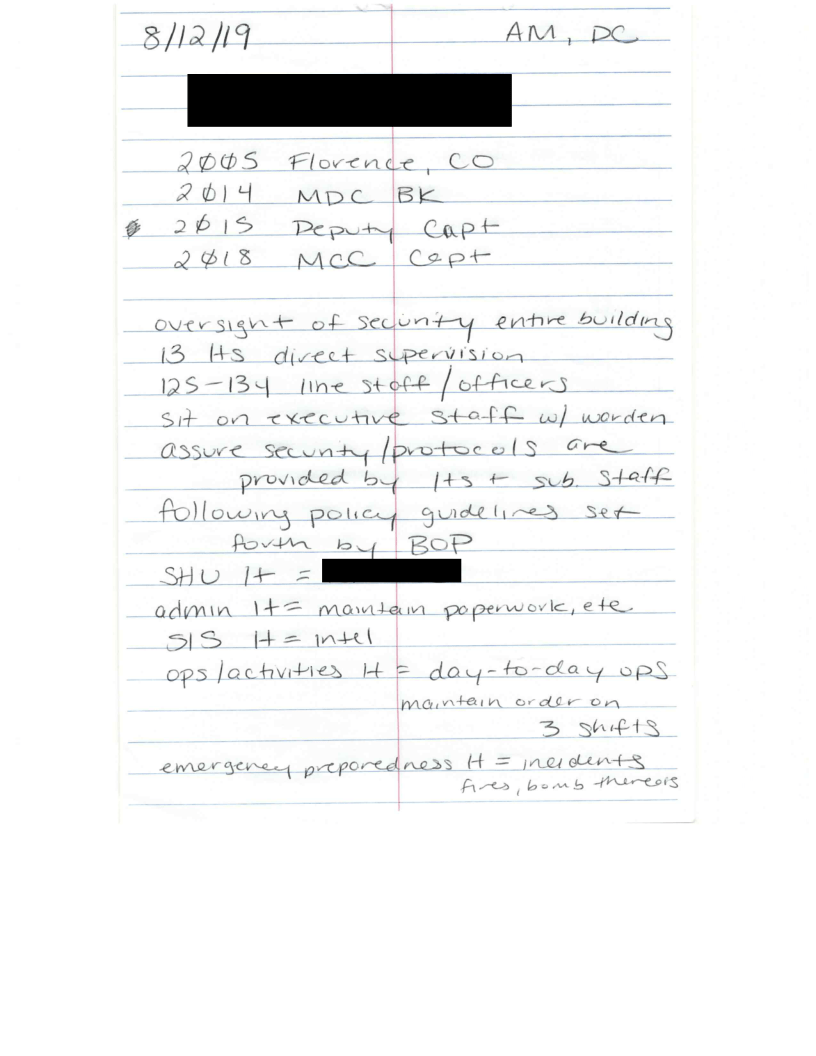 8/12/19 AM, DC
2005 Florence, CO
2014 MDC BK
2015 Deputy Capt
2018 MCC Capt
oversight of security entire building
13 lts direct supervision
125-134 line staff/officers
sit on executive staff w/ warden
assure security/protocols are
provided by lts + sub. staff
following policy guidelines set
forth by BOP
SHU lt =
admin lt = maintain paperwork, etc
SIS lt = intel
ops/activities lt = day-to-day ops
maintain order on
3 shifts
emergency preparedness lt = incidents
fires, bomb